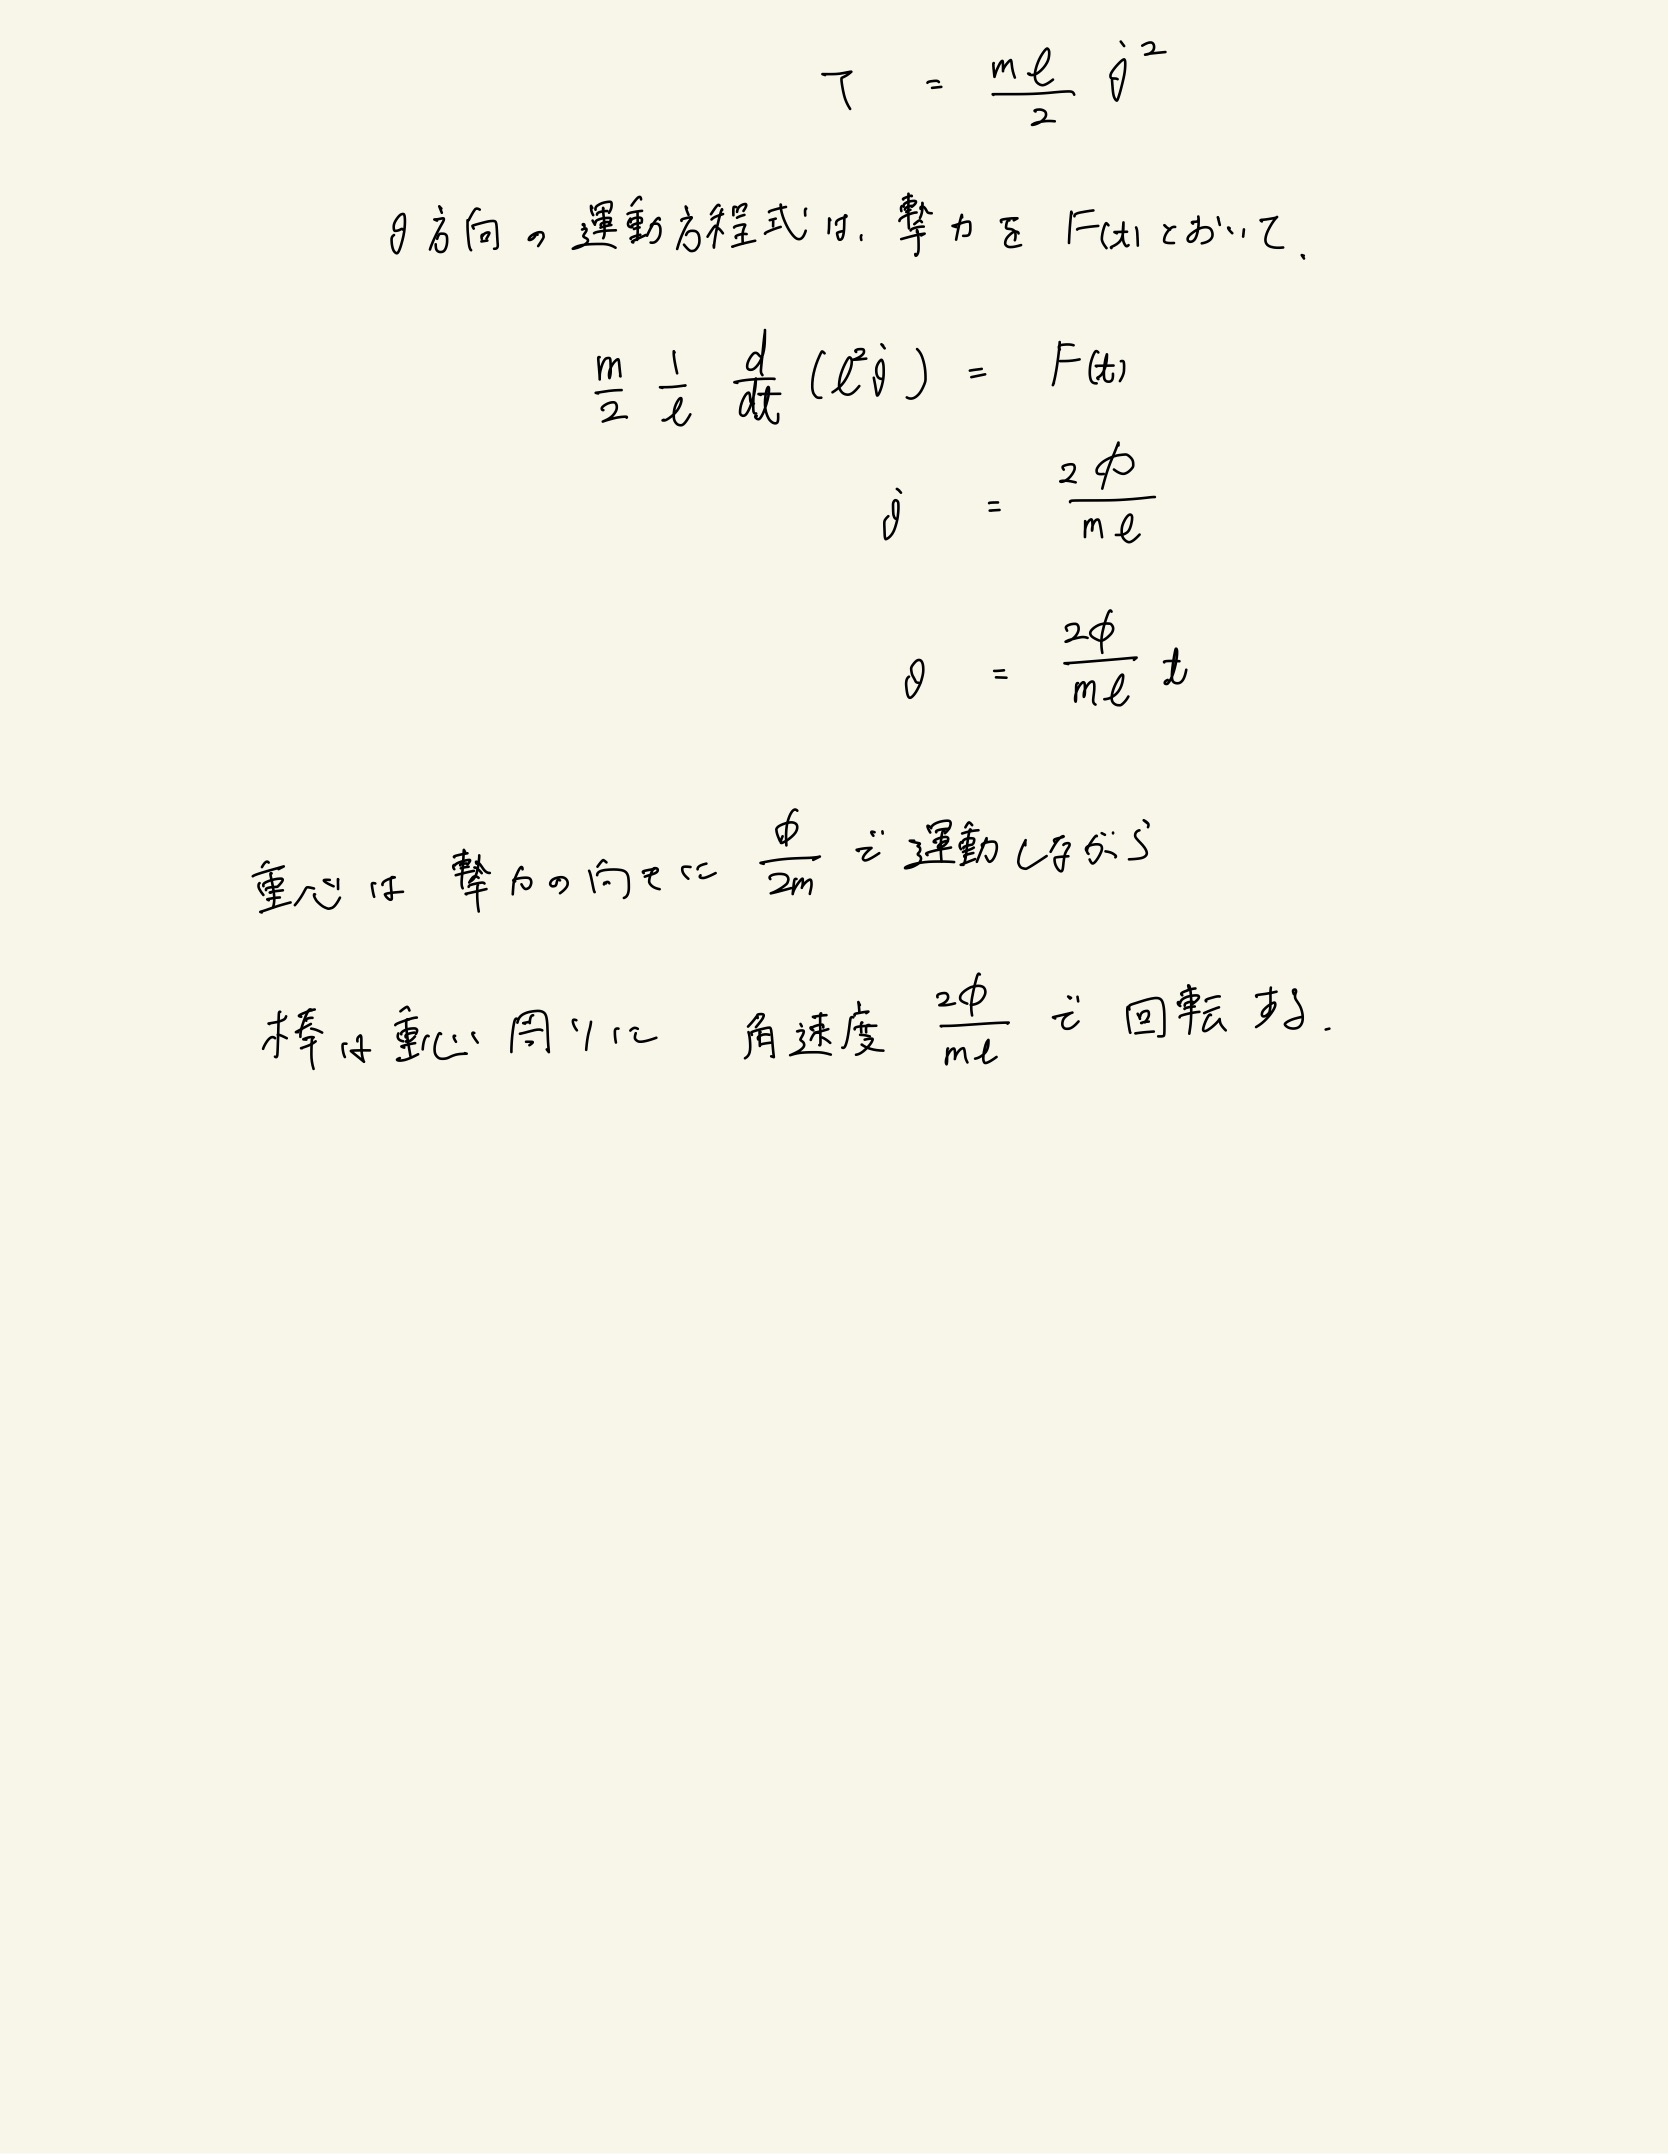 T = mℓ/2 θ̇²
θ方向の運動方程式は, 撃力を F(t) とおいて,
m/2 1/ℓ d/dt (ℓ²θ̇) = F(t)
θ̇ = 2Φ/mℓ
θ = 2Φ/mℓ t
重心は 撃力の向きに Φ/2m で 運動しながら
棒は重心周りに 角速度 2Φ/mℓ で 回転する.